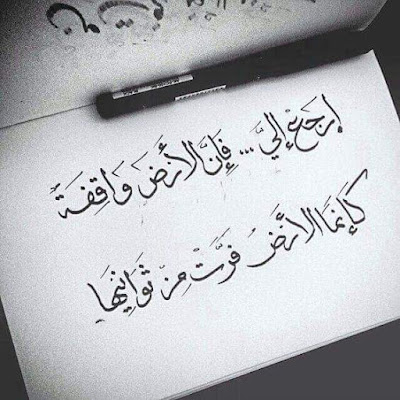 إرجَعْ إليَّ ... فَإنَّ الأرضَ وَاقِفَةٌ
كَإنمَا الأرْضُ فَرَّتْ مِنْ ثَوَانِيهَا